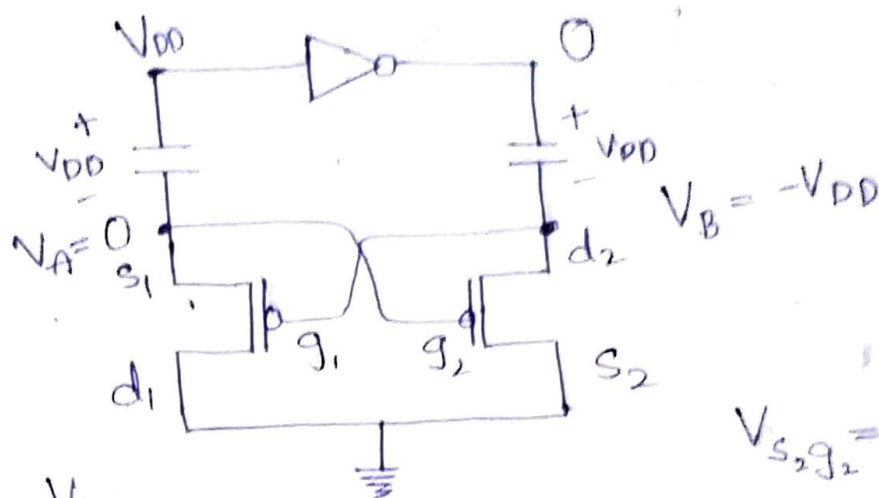 V_DD
0
+
V_DD
-
+
V_DD
-
V_A = 0
V_B = -V_DD
s₁
d₂
g₁
g₂
d₁
s₂
V_s₂g₂ =
V